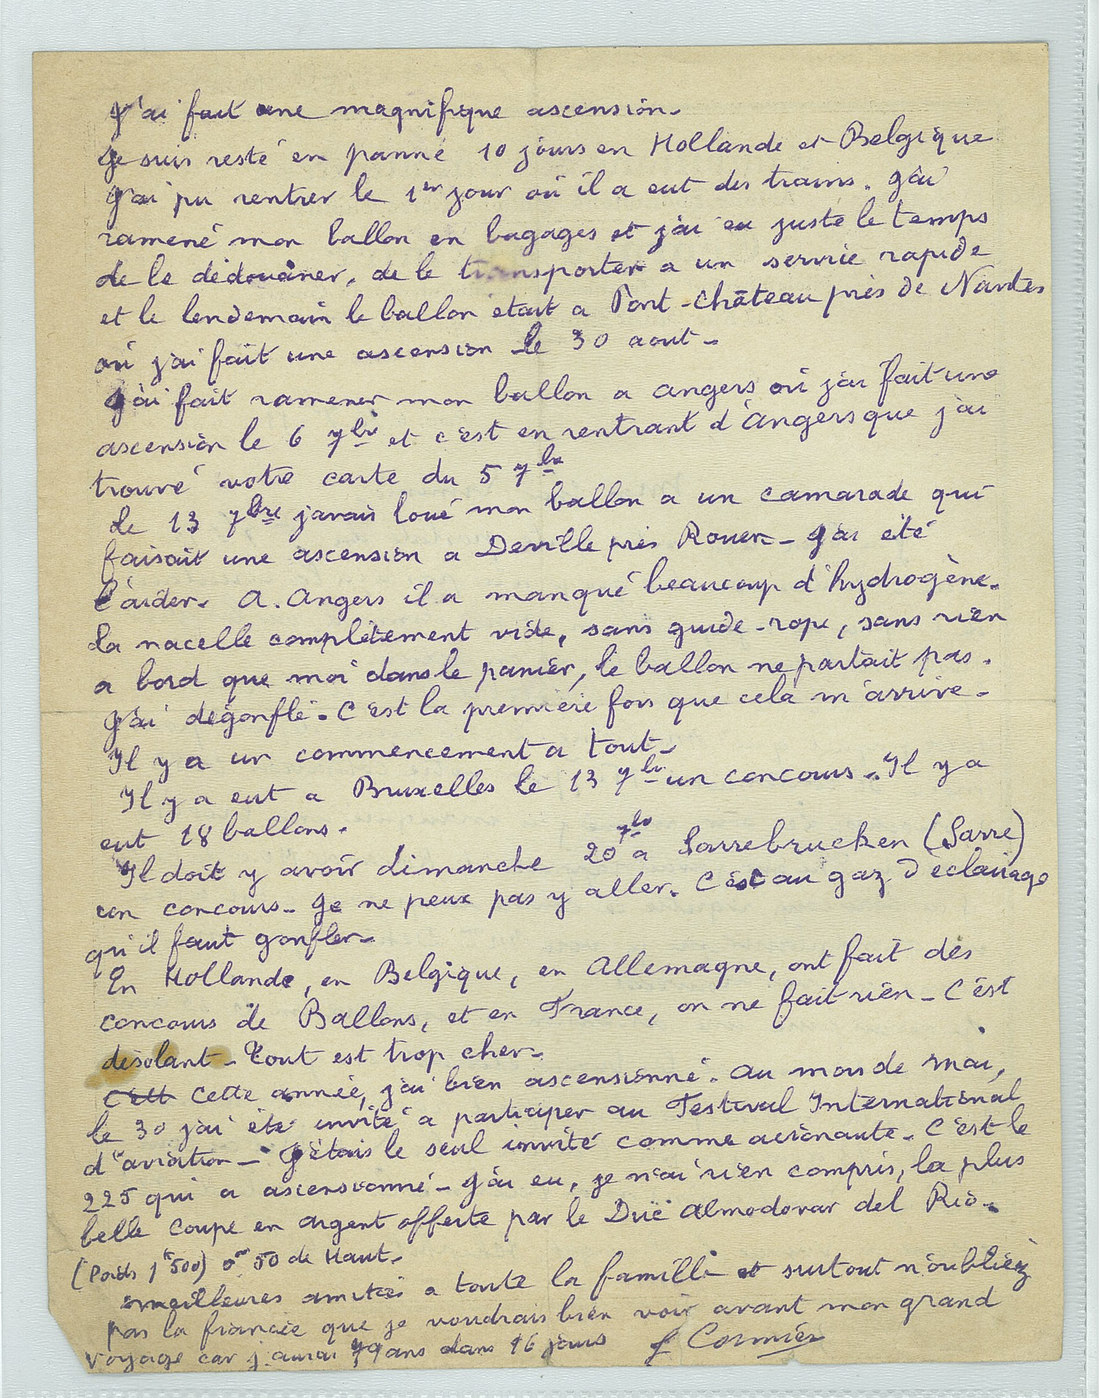 J'ai fait une magnifique ascension.
Je suis resté en panne 10 jours en Hollande et Belgique
J'ai pu rentrer le 1er jour où il a eut des trains. J'ai
ramené mon ballon en bagages et j'ai eu juste le temps
de le dédouaner, de le transporter a un service rapide
et le lendemain le ballon etait a Pont-Château près de Nantes
où j'ai fait une ascension le 30 aout -
J'ai fait ramener mon ballon a angers où j'ai fait une
ascension le 6 7bre et c'est en rentrant d'Angers que j'ai
trouvé votre carte du 5 7bre
Le 13 7bre j'avais loué mon ballon a un camarade qui
faisait une ascension a Deville près Rouen - J'ai été
l'aider. A. Angers il a manqué beaucoup d'hydrogène.
La nacelle complètement vide, sans guide-rope, sans rien
a bord que moi dans le panier, le ballon ne partait pas.
J'ai dégonflé. C'est la première fois que cela m'arrive -
Il y a un commencement a tout -
Il y a eut a Bruxelles le 13 7bre un concours. Il y a
eut 18 ballons.
Il doit y avoir dimanche 20 7bre a Sarrebrucken (Sarre)
un concours - Je ne peux pas y aller. C'est au gaz d'éclairage
qu'il faut gonfler -
En Hollande, en Belgique, en Allemagne, ont fait des
concours de Ballons, et en France, on ne fait rien - C'est
désolant - Tout est trop cher -
C'est Cette année, j'ai bien ascensionné. Au mois de Mai,
le 30 j'ai été invité a participer au Festival International
d'aviation - J'étais le seul invité comme aéronaute. C'est le
225 qui a ascensionné - J'ai eu, je n'ai rien compris, la plus
belle coupe en argent offerte par le Duc Almodovar del Rio.
(Poids 1k500) 0m 50 de Haut -
meilleures amitiés a toute la famille et surtout n'oubliez
pas la fiancée que je voudrais bien voir avant mon grand
voyage car j'aurai 79 ans dans 16 jours Cormier